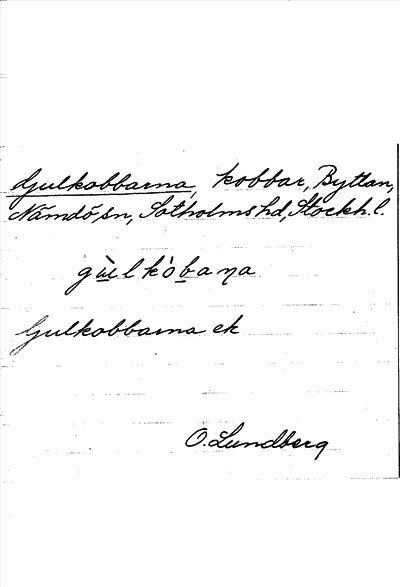 Gulkobbarna, kobbar, Byttan,
Nämdö sn, Sotholms hd, Stockh. l.
gù̲lkò̲baɳa
Gulkobbarna ek
O. Lundberg